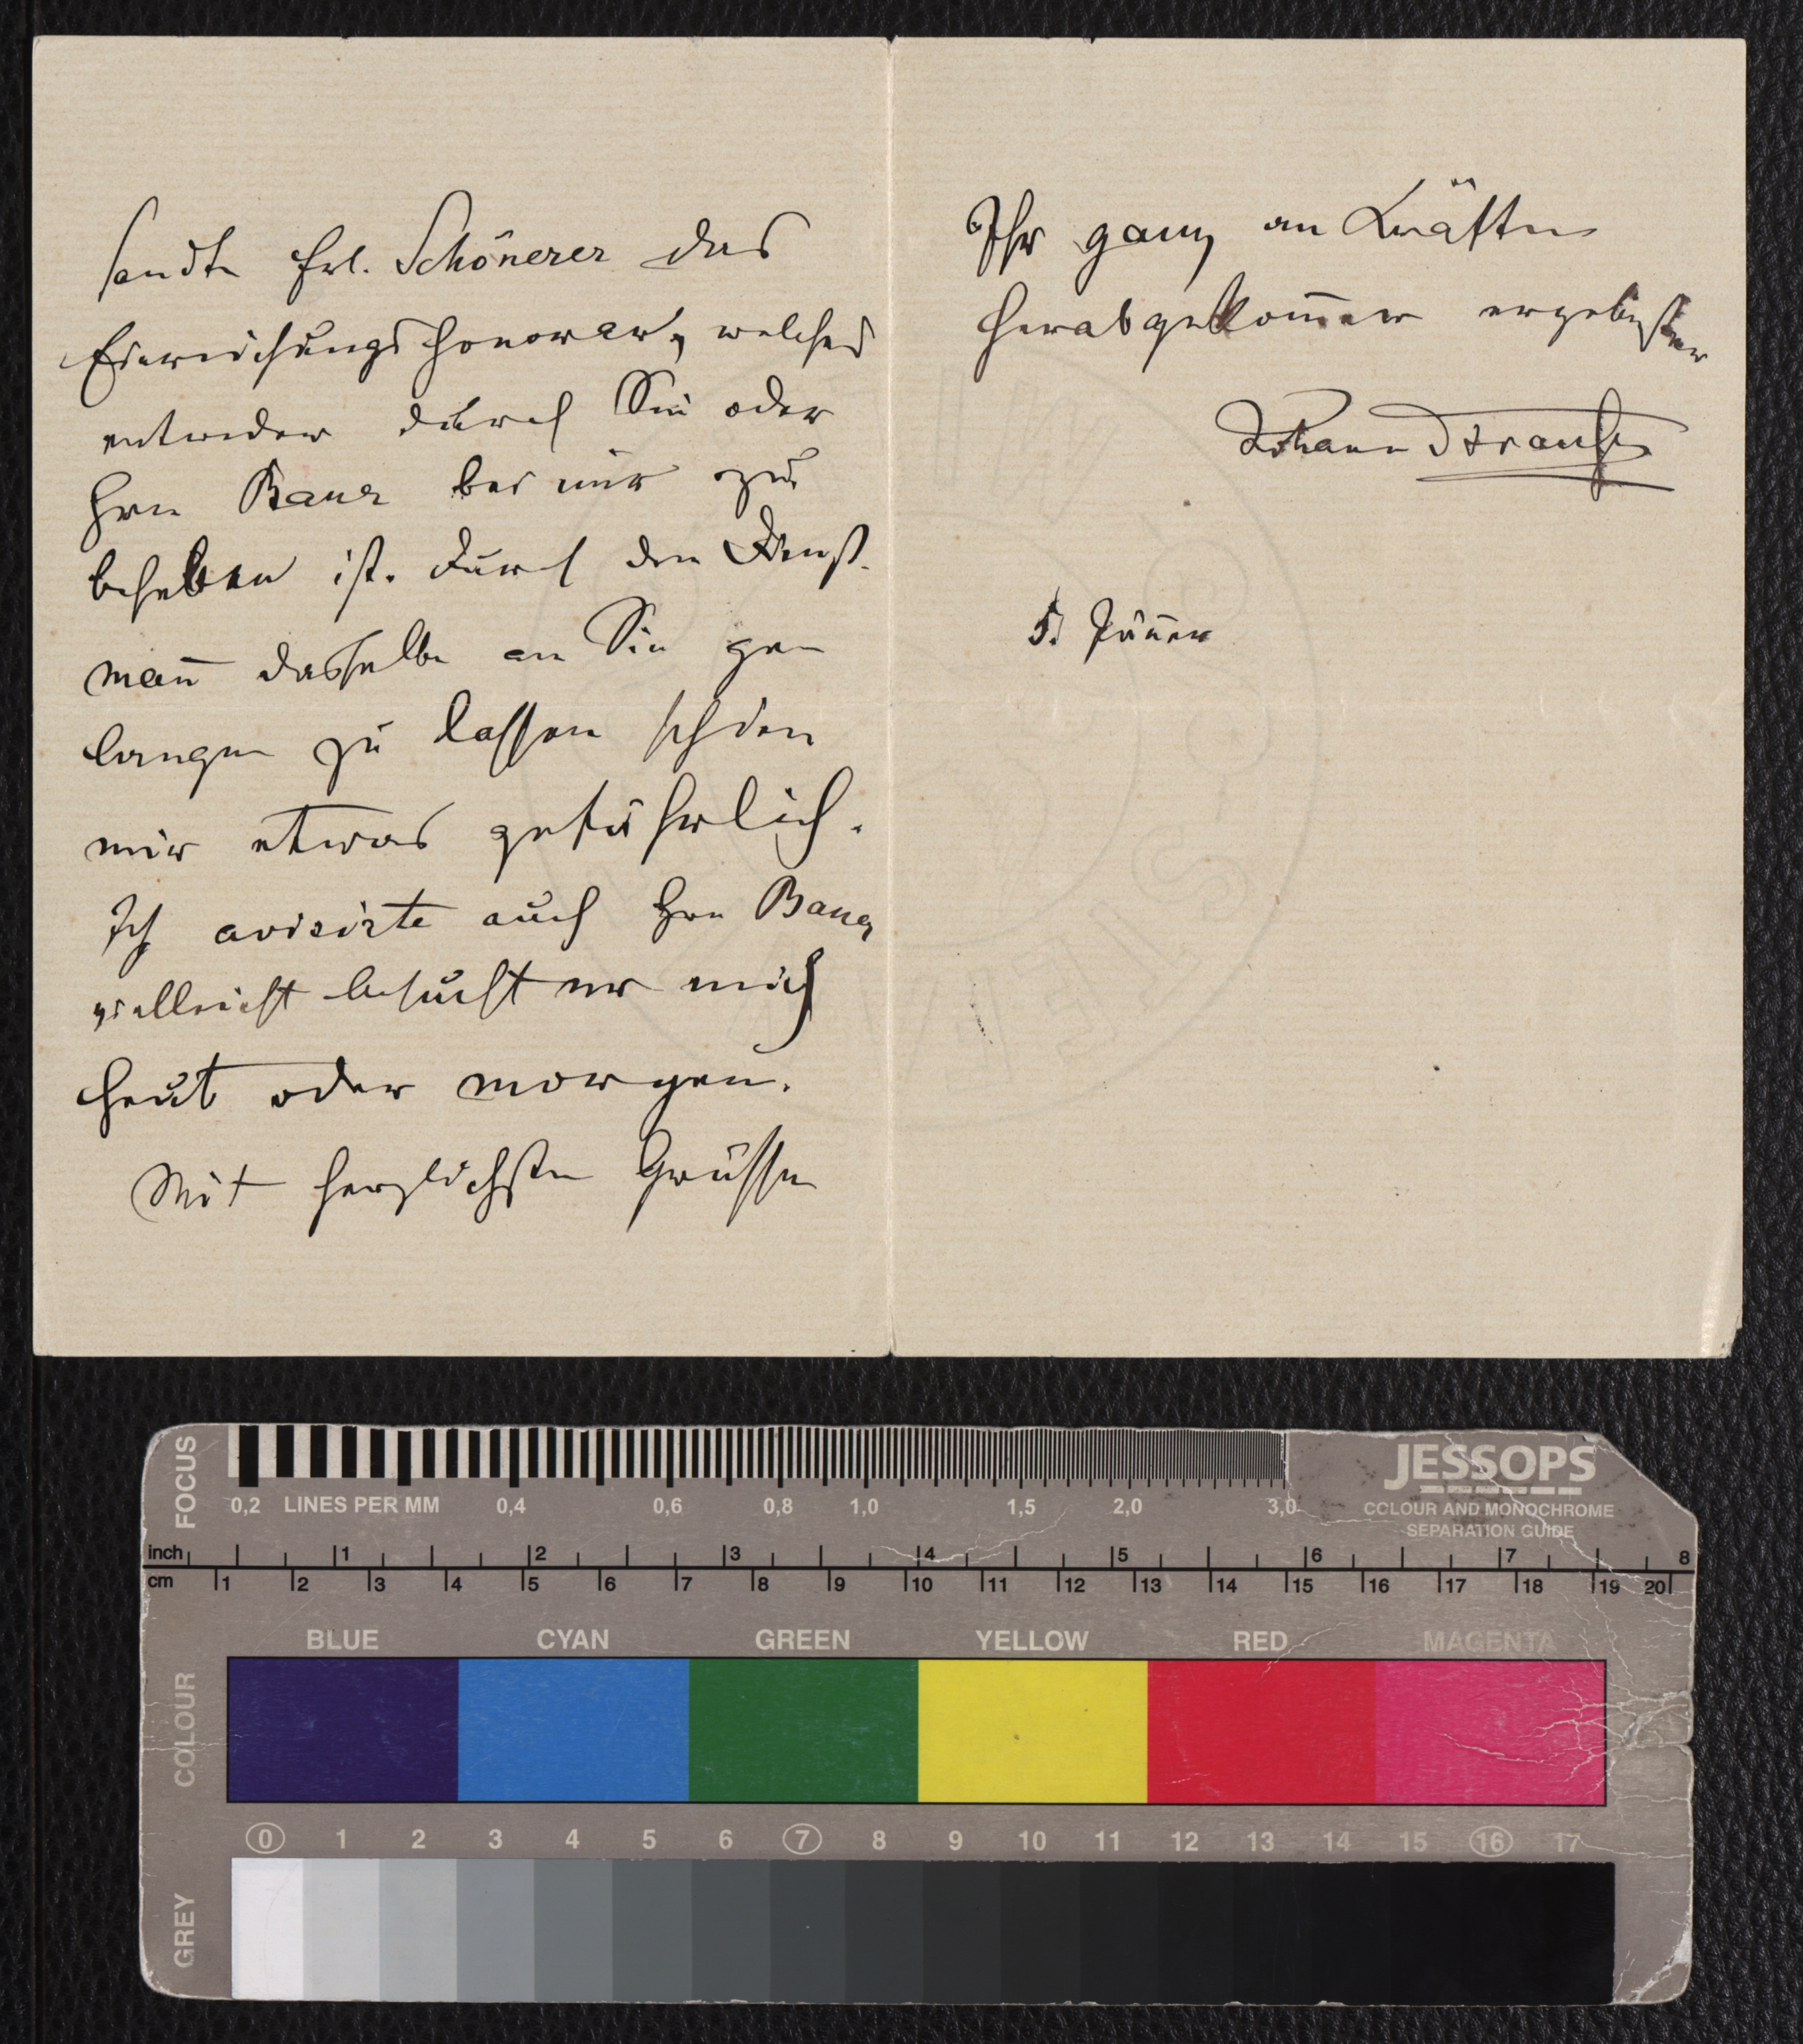 sandte Frl. Schönerer das
Einreichungshonorar, welches
entweder durch Sie oder
Hrn Bauer bei mir zu
beheben ist. Durch den Dienst-
mañ dasselbe an Sie gen
langen zu lassen schien
mir etwas gefährlich.
Ich avisirte auch Hrn Bauer
vielleicht besucht er mich
heut oder morgen.
Mit herzlichsten Grüssen
Ihr ganz an Kräften
herabgekom̄ener ergebenster
Johann Strauss
5. Jäner
FOCUS
0,2 LINES PER MM 0,4 0,6 0,8 1,0 1,5 2,0 3,0
JESSOPS
COLOUR AND MONOCHROME
SEPARATION GUIDE
inch 1 2 3 4 5 6 7 8
cm 1 2 3 4 5 6 7 8 9 10 11 12 13 14 15 16 17 18 19 20
COLOUR
BLUE CYAN GREEN YELLOW RED MAGENTA
0 1 2 3 4 5 6 7 8 9 10 11 12 13 14 15 16 17
GREY